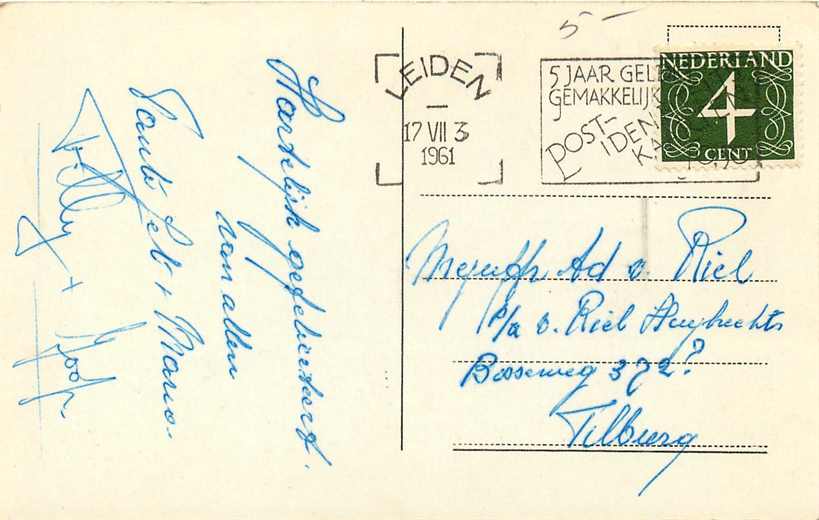 5-
LEIDEN
17 VII 3
1961
5 JAAR GEL
GEMAKKELIJK
POST-
IDEN
KA
NEDERLAND
4
CENT
Hartelijk gefeliciteerd.
van allen
Tante
+ Mario.
Willy
+ Joop.
Mejuffr Ad v. Riel
p/a v. Riel Huybrechts
Bosseweg 372?
Tilburg